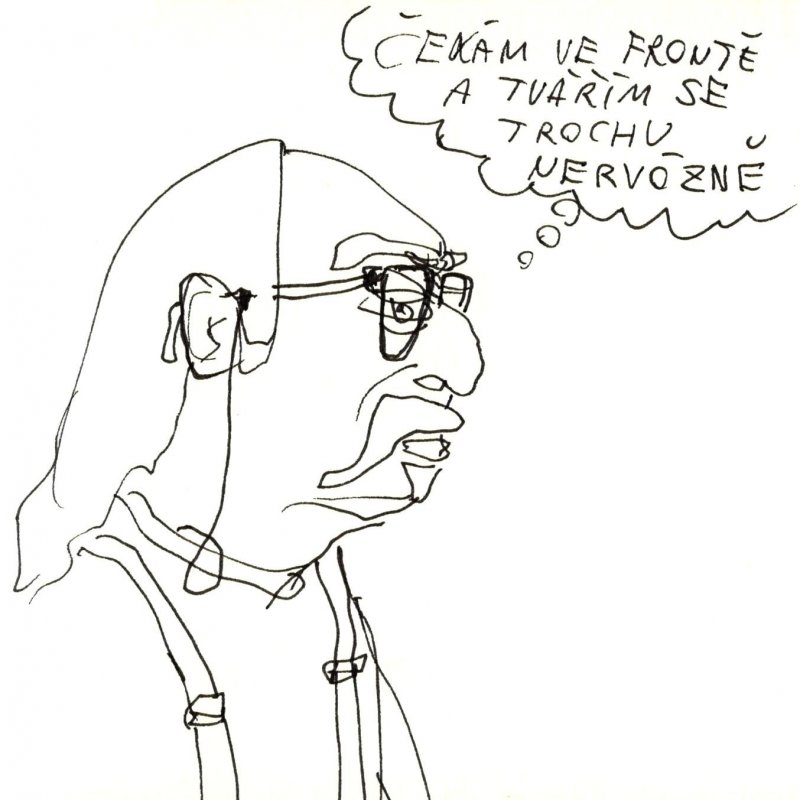 ČEKÁM VE FRONTĚ
A TVÁŘÍM SE
TROCHU
NERVÓZNĚ